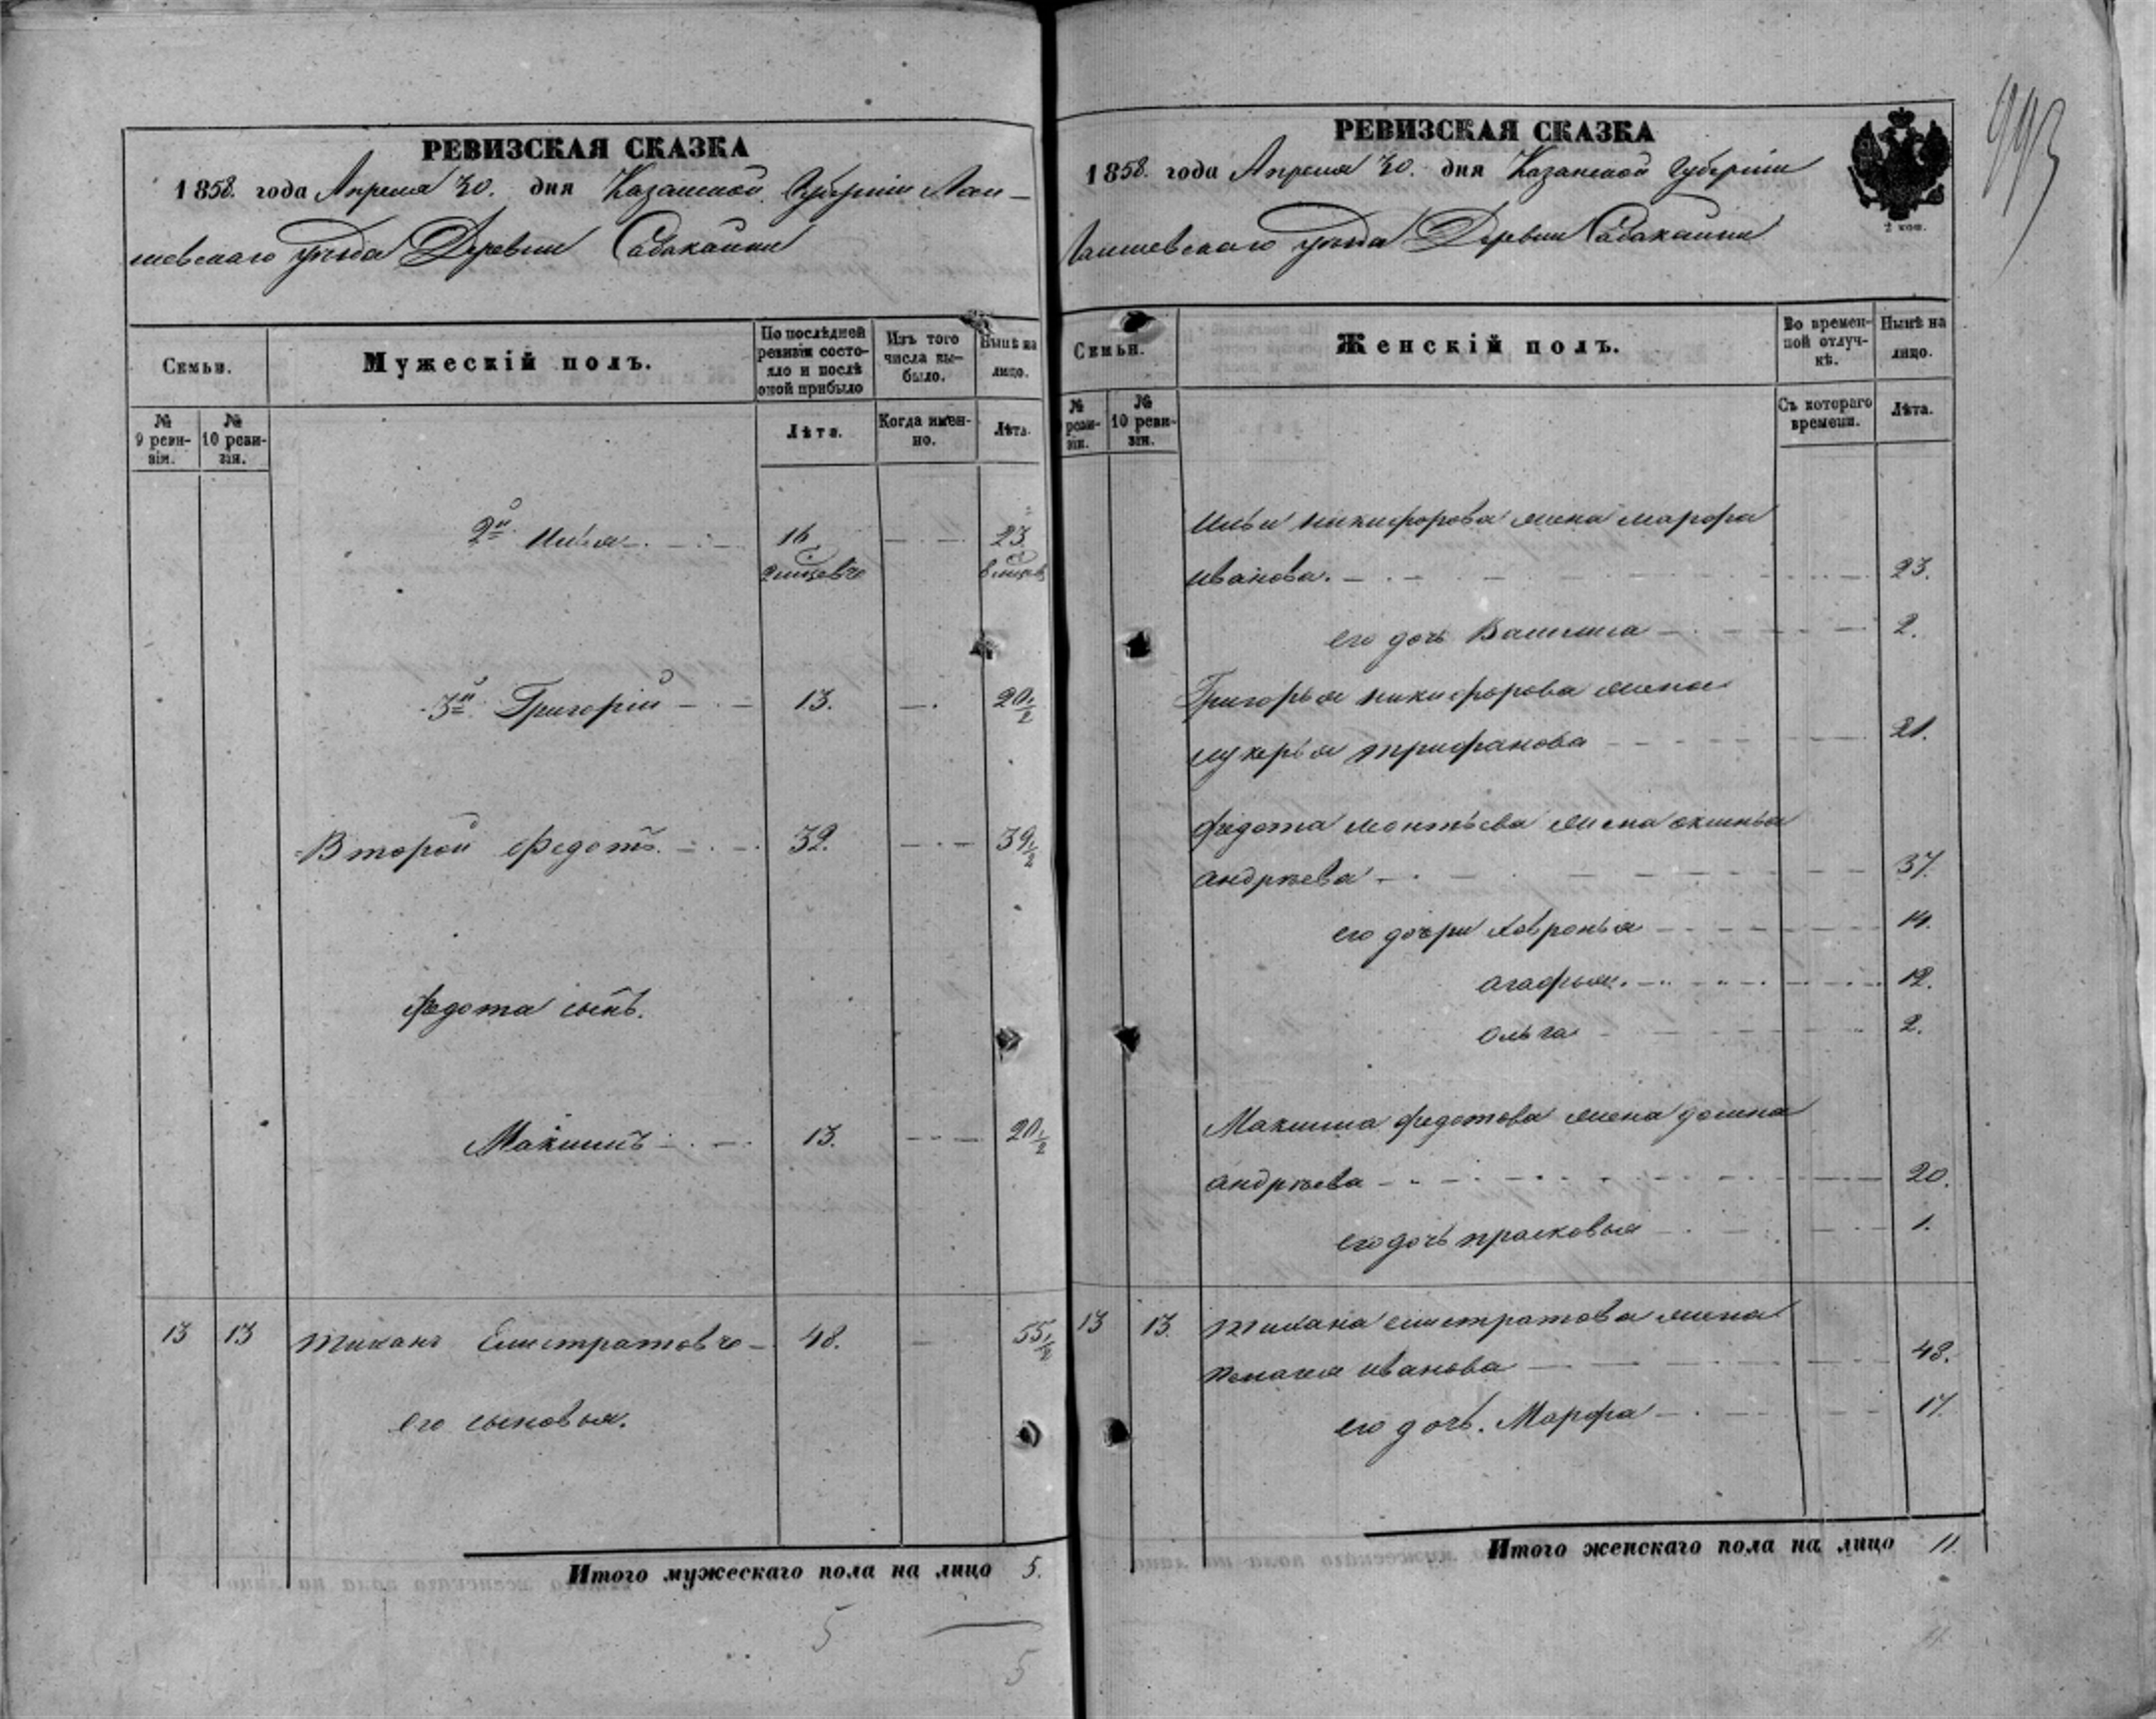 РЕВИЗСКАЯ СКАЗКА
1858. года Апреля 30. дня Казанской Губерніи Лаи–
шевскаго уѣзда Деревни Сабакайки
Семьи.
Мужескій полъ.
По послѣдней ревизіи состояло и послѣ оной прибыло
Изъ того числа выбыло.
Нынѣ на лицо.
№ 9 ревизіи.
№ 10 ревизіи.
Лѣта.
Когда именно.
Лѣта.
2й Илья 16 23
3й Григорій 13. 20 1/2
Второй Федотъ. 32. 39 1/2
Федота сынъ.
Максимъ 13. 20 1/2
13 13 Тиханъ Елистратовъ 48. 55 1/2
его сыновья.
Итого мужескаго пола на лицо 5.
5
5
993
РЕВИЗСКАЯ СКАЗКА
1858. года Апреля 30. дня Казанской Губерніи
Лаишевскаго уѣзда Деревни Сабакайки
2 коп.
Семьи.
Женскій полъ.
Во временной отлучкѣ.
Нынѣ на лицо.
№ ревизіи.
№ 10 ревизіи.
Съ котораго времени.
Лѣта.
Ильи никифорова жена марфа
иванова. 23.
его дочь Василиса 2.
Григорья никифорова жена
лукерья трифанова 21.
федота леонтьева жена аксинья
андрѣева 37.
его дочери хавронья 14.
агафья. 12.
ольга 2.
Максима федотова жена домна
андрѣева 20.
его дочь прасковья 1.
13 13. тихана елистратова жена
пелагея иванова 48.
его дочь. Марфа 17.
Итого женскаго пола на лицо 11.